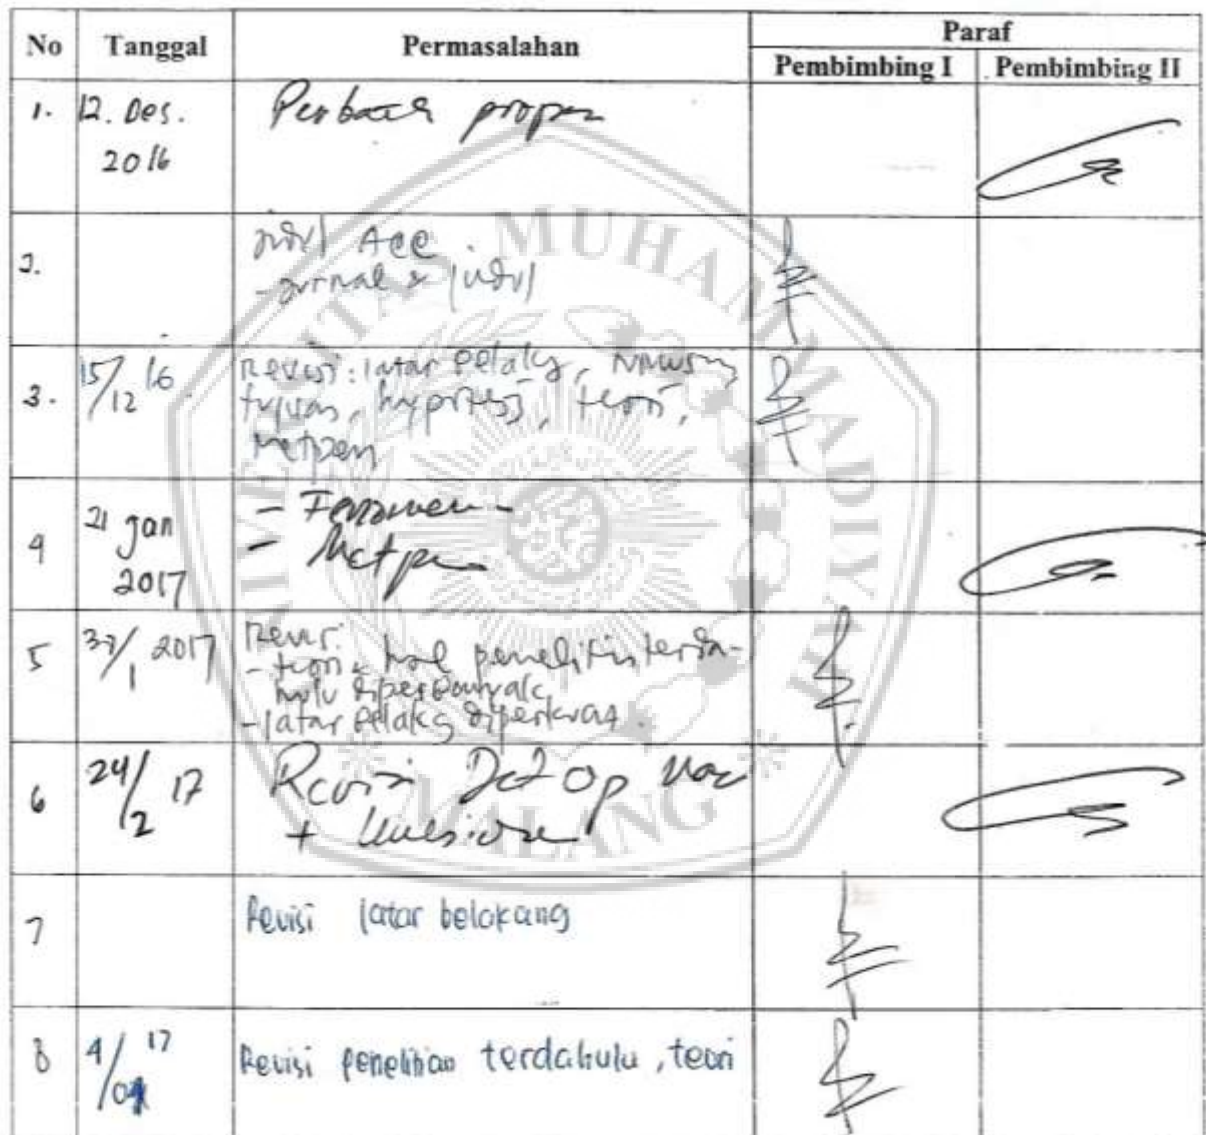 No Tanggal Permasalahan Paraf
Pembimbing I Pembimbing II
1. 12. Des. 2016
2. judul Acc
- jurnal & judul
3. 15/12 16 Revisi: latar belakg,
tujuan, hypotesis, teori,
Metpen
4 21 Jan 2017 - Fenomen
- Metpen
5 /1 2017 Revisi:
- teori & hasl penelitian terda-
hulu diperbanyak
- latar belakg diperkuat.
6 24/2 17 Revisi Def Op
+
7 Revisi latar belakang
8 4/ 17 Revisi penelitian terdahulu, teori
UNIVERSITAS MUHAMMADIYAH
MALANG